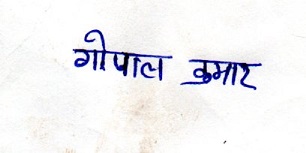 गोपाल कुमार